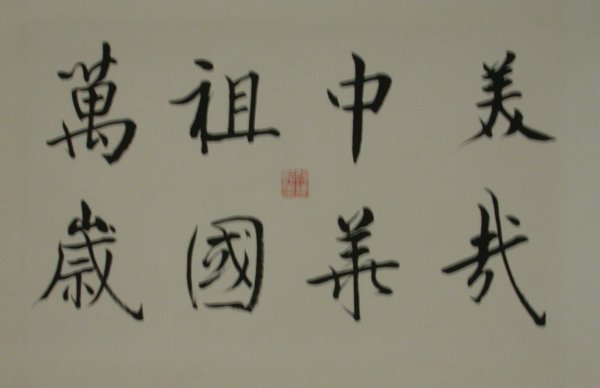 美哉
中華
祖國
萬歲